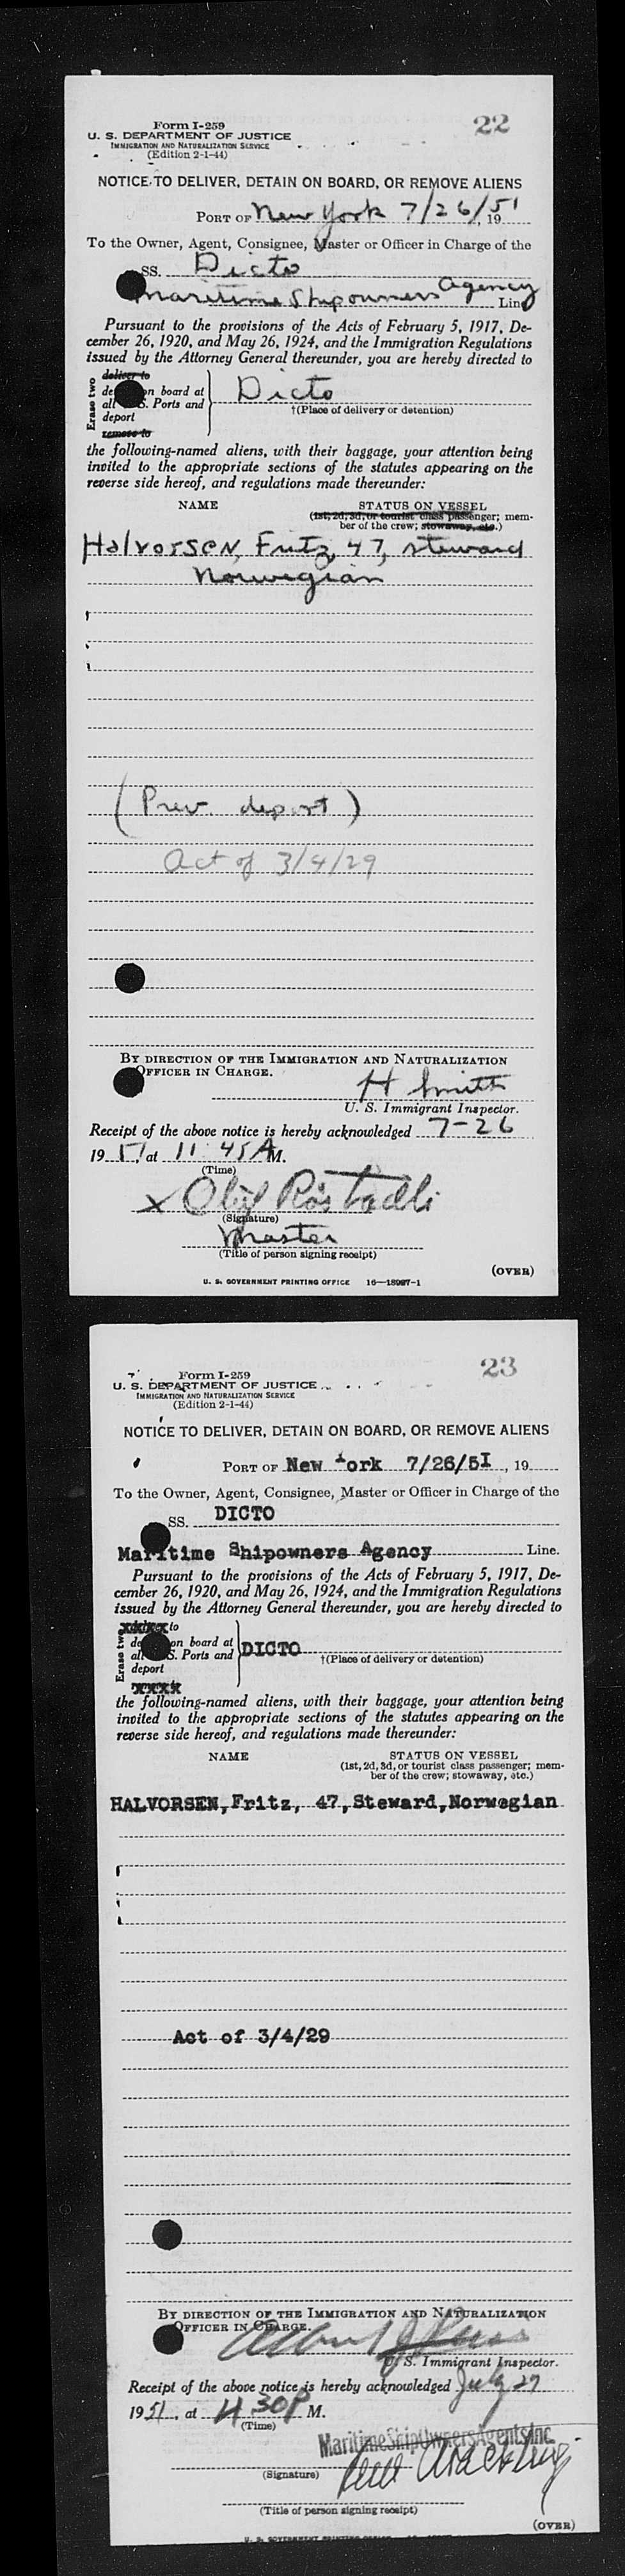 22
Form I-259
U. S. DEPARTMENT OF JUSTICE
IMMIGRATION AND NATURALIZATION SERVICE
(Edition 2-1-44)
NOTICE TO DELIVER, DETAIN ON BOARD, OR REMOVE ALIENS
PORT OF New York 7/26/51, 19
To the Owner, Agent, Consignee, Master or Officer in Charge of the
SS. Dicto
Maritime Shipowners Agency Line
Pursuant to the provisions of the Acts of February 5, 1917, De-
cember 26, 1920, and May 26, 1924, and the Immigration Regulations
issued by the Attorney General thereunder, you are hereby directed to
Erase two
deliver to
on board at
S. Ports and
deport
remove to
Dicto
†(Place of delivery or detention)
the following-named aliens, with their baggage, your attention being
invited to the appropriate sections of the statutes appearing on the
reverse side hereof, and regulations made thereunder:
NAME STATUS ON VESSEL
(1st, 2d, 3d, or tourist class passenger; mem-
ber of the crew; stowaway, etc.)
Halvorsen, Fritz, 47, steward
Norwegian
(Prev. deport)
Act of 3/4/29
BY DIRECTION OF THE IMMIGRATION AND NATURALIZATION
OFFICER IN CHARGE.
H Smith
U. S. Immigrant Inspector.
Receipt of the above notice is hereby acknowledged 7-26
1951, at 11:45 A M.
(Time)
x
(Signature)
Master
(Title of person signing receipt)
(OVER)
U. S. GOVERNMENT PRINTING OFFICE 16—18987-1
23
Form I-259
U. S. DEPARTMENT OF JUSTICE
IMMIGRATION AND NATURALIZATION SERVICE
(Edition 2-1-44)
NOTICE TO DELIVER, DETAIN ON BOARD, OR REMOVE ALIENS
PORT OF New York 7/26/5I, 19
To the Owner, Agent, Consignee, Master or Officer in Charge of the
SS. DICTO
Maritime Shipowners Agency Line.
Pursuant to the provisions of the Acts of February 5, 1917, De-
cember 26, 1920, and May 26, 1924, and the Immigration Regulations
issued by the Attorney General thereunder, you are hereby directed to
Erase two
to
on board at
S. Ports and
deport
xxxx
DICTO
†(Place of delivery or detention)
the following-named aliens, with their baggage, your attention being
invited to the appropriate sections of the statutes appearing on the
reverse side hereof, and regulations made thereunder:
NAME STATUS ON VESSEL
(1st, 2d, 3d, or tourist class passenger; mem-
ber of the crew; stowaway, etc.)
HALVORSEN, Fritz, 47, Steward, Norwegian
Act of 3/4/29
BY DIRECTION OF THE IMMIGRATION AND NATURALIZATION
OFFICER IN CHARGE.
U. S. Immigrant Inspector.
Receipt of the above notice is hereby acknowledged July 27
1951, at 4 30P M.
(Time)
Maritime ShipOwners Agents Inc.
(Signature)
(Title of person signing receipt)
(OVER)
U. S. GOVERNMENT PRINTING OFFICE